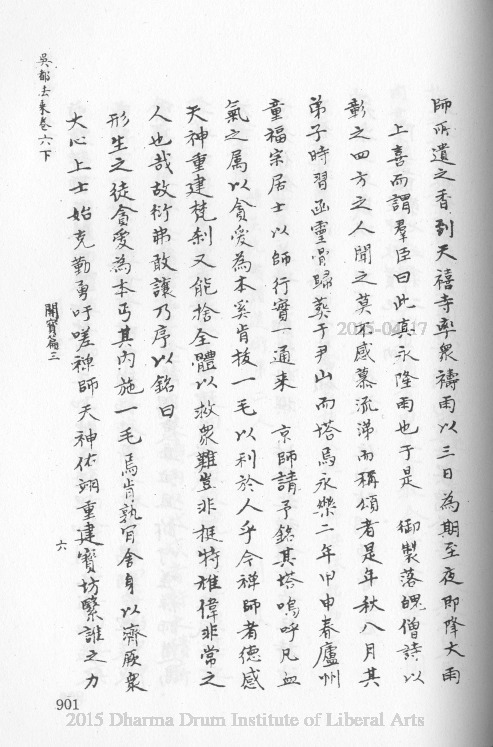 師所遺之香到天禧寺率衆禱雨以三日為期至夜即降大雨
上喜而謂羣臣曰此真永隆雨也于是 御製落魄僧詩以
彰之四方之人聞之莫不感慕流涕而稱頌者是年秋八月其
弟子時習函靈骨歸葬于尹山而塔焉永樂二年甲申春廬州
童福宗居士以師行實一通来 京師請予銘其塔嗚呼凡血
氣之属以貪愛為本奚肯拔一毛以利於人乎今禅師者德感
天神重建梵刹又能捨全體以救衆難豈非挺特雅偉非常之
人也哉故衍弗敢讓乃序以銘曰
形生之徒貪愛為本丐其內施一毛焉肯孰肎舍身以濟厥衆
大心上士始克勤勇吁嗟禅師天神佑翊重建寳坊繄誰之力
吳都法乘卷六下
開寳篇三
六
901
2015-04-17
2015 Dharma Drum Institute of Liberal Arts